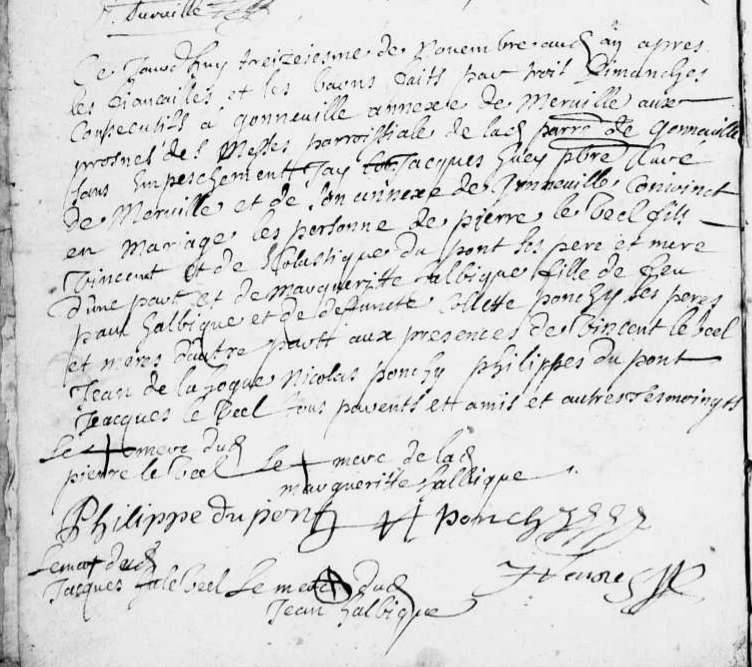 Durville
Ce Jourdhuy treiziesme de Novembre aud an apres
les fiancailles et les bans faits par trois Dimanches
Consecutifs a gonneuille annexe de Meruille aux
prosnes des Messes parroissiale de lad parre de gonneuille
sans Empeschement Jay Jacques huey pbre Curé
de Meruille et de son annexe de Gonneuille Conioinct
en Mariage les personne de pierre le becl fils
vincent et de Scolastique du pont ses pere et mere
dune part et de margueritte halbique fille de feu
paul halbique et de deffuncte Collette ponchy ses peres
et meres dautre partt aux presences de vincent le becl
Jean de la hogue Nicolas ponchy philippes du pont
Jacques le becl tous parents ett amis et autres tesmoingts
Le merc dud
pierre le becl Le merc de lad
margueritte halbique
Philippe dupont N ponchy
Le merc dud
Jacques le becl Le merc dud
Jean halbique